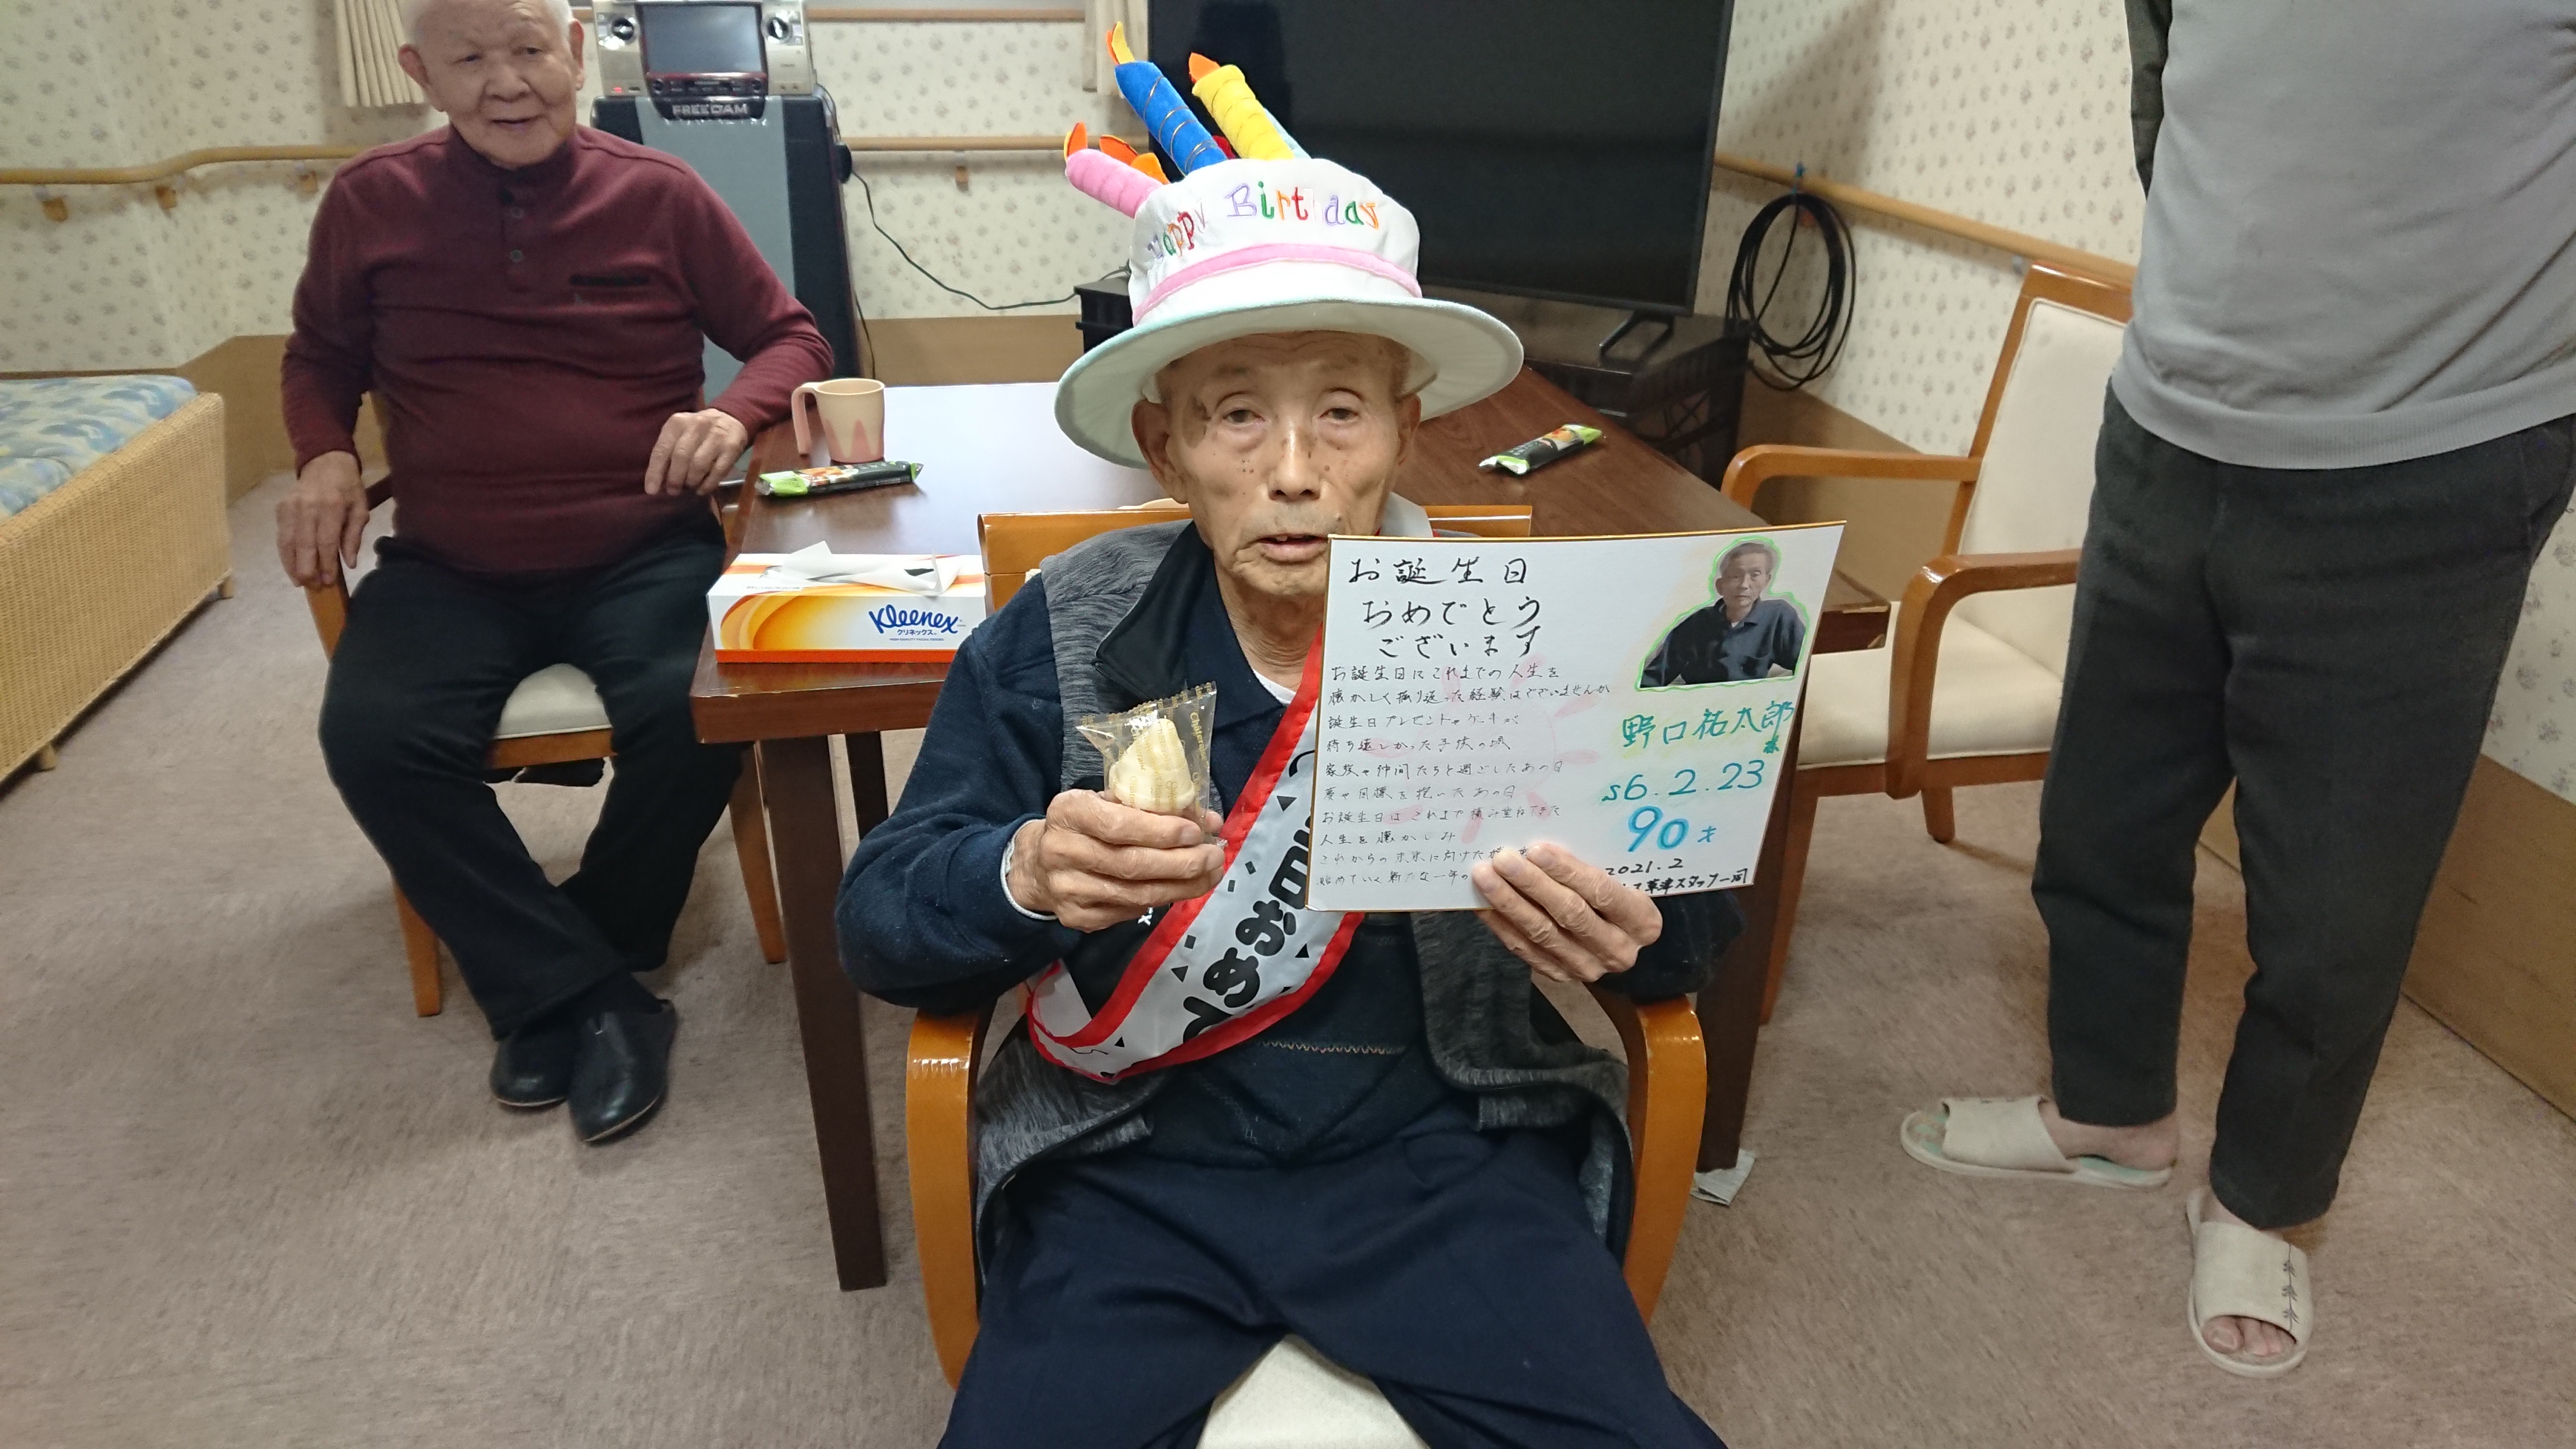 FREEDAM
Happy Birthday
Kleenex
クリネックス
お誕生日
おめでとう
ございます
お誕生日にこれまでの人生を
懐かしく振り返った経験はございませんか
誕生日プレゼントやケーキが
待ち遠しかった子供の頃
家族や仲間たちと過ごしたあの日
夢や目標を抱いたあの日
お誕生日はこれまで積み重ねてきた
人生を懐かしみ
これからの未来に向けた
始めていく新たな一年の
野口祐太郎
様
S6.2.23
90才
2021.2
草津スタッフ一同
日おめで